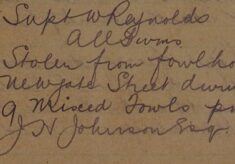 Supt W Reynolds
All Divns
Stolen from fowlho
Newgate Street durin
9 Mixed Fowls po
J N Johnson Esq